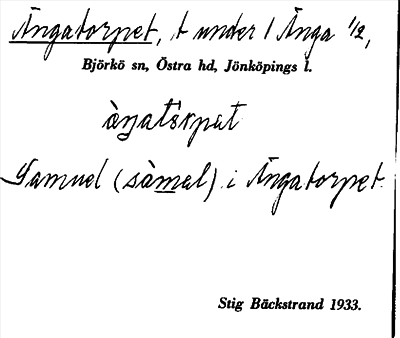 Ängatorpet, t under 1 Änga 1/2,
Björkö sn, Östra hd, Jönköpings l.
àŋatɔrpat
Samuel (sàmal) i Ängatorpet.
Stig Bäckstrand 1933.